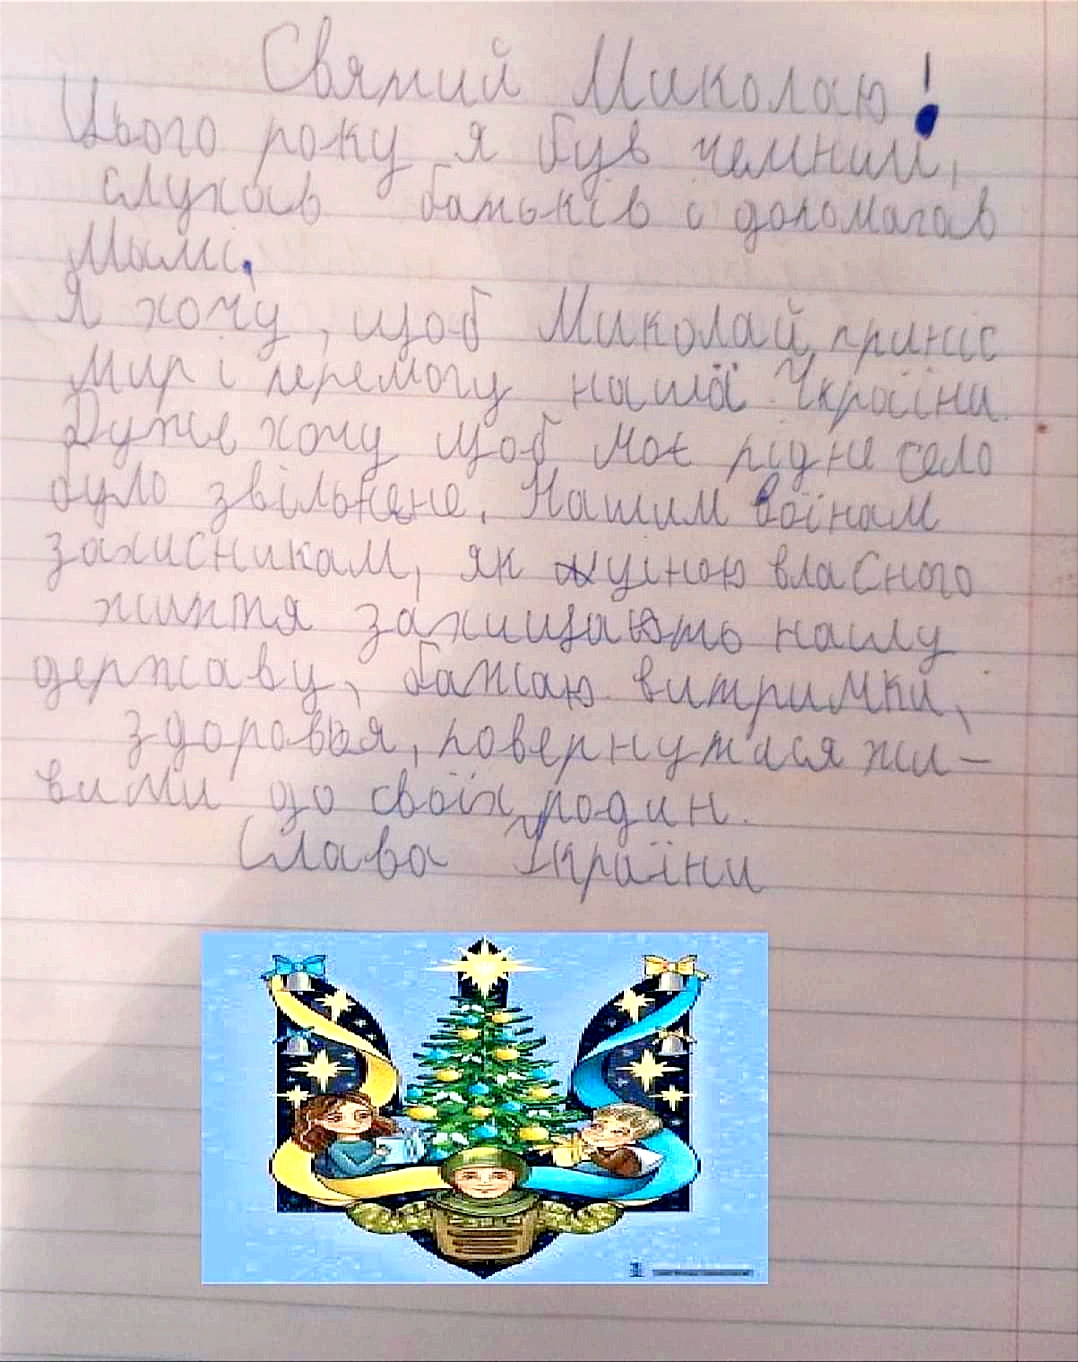 Святий Миколаю!
Цього року я був чемним,
слухав батьків і допомагав
мамі.
Я хочу, щоб Миколай приніс
мир і перемогу нашій Україіни.
Дуже хочу щоб моє рідне село
було звільнене. Нашим воїнам
захисникам, як ціною власного
життя захищають нашу
державу, бажаю витримки,
здоровья, повернутися жи-
вими до своїх родин.
Слава Україіни